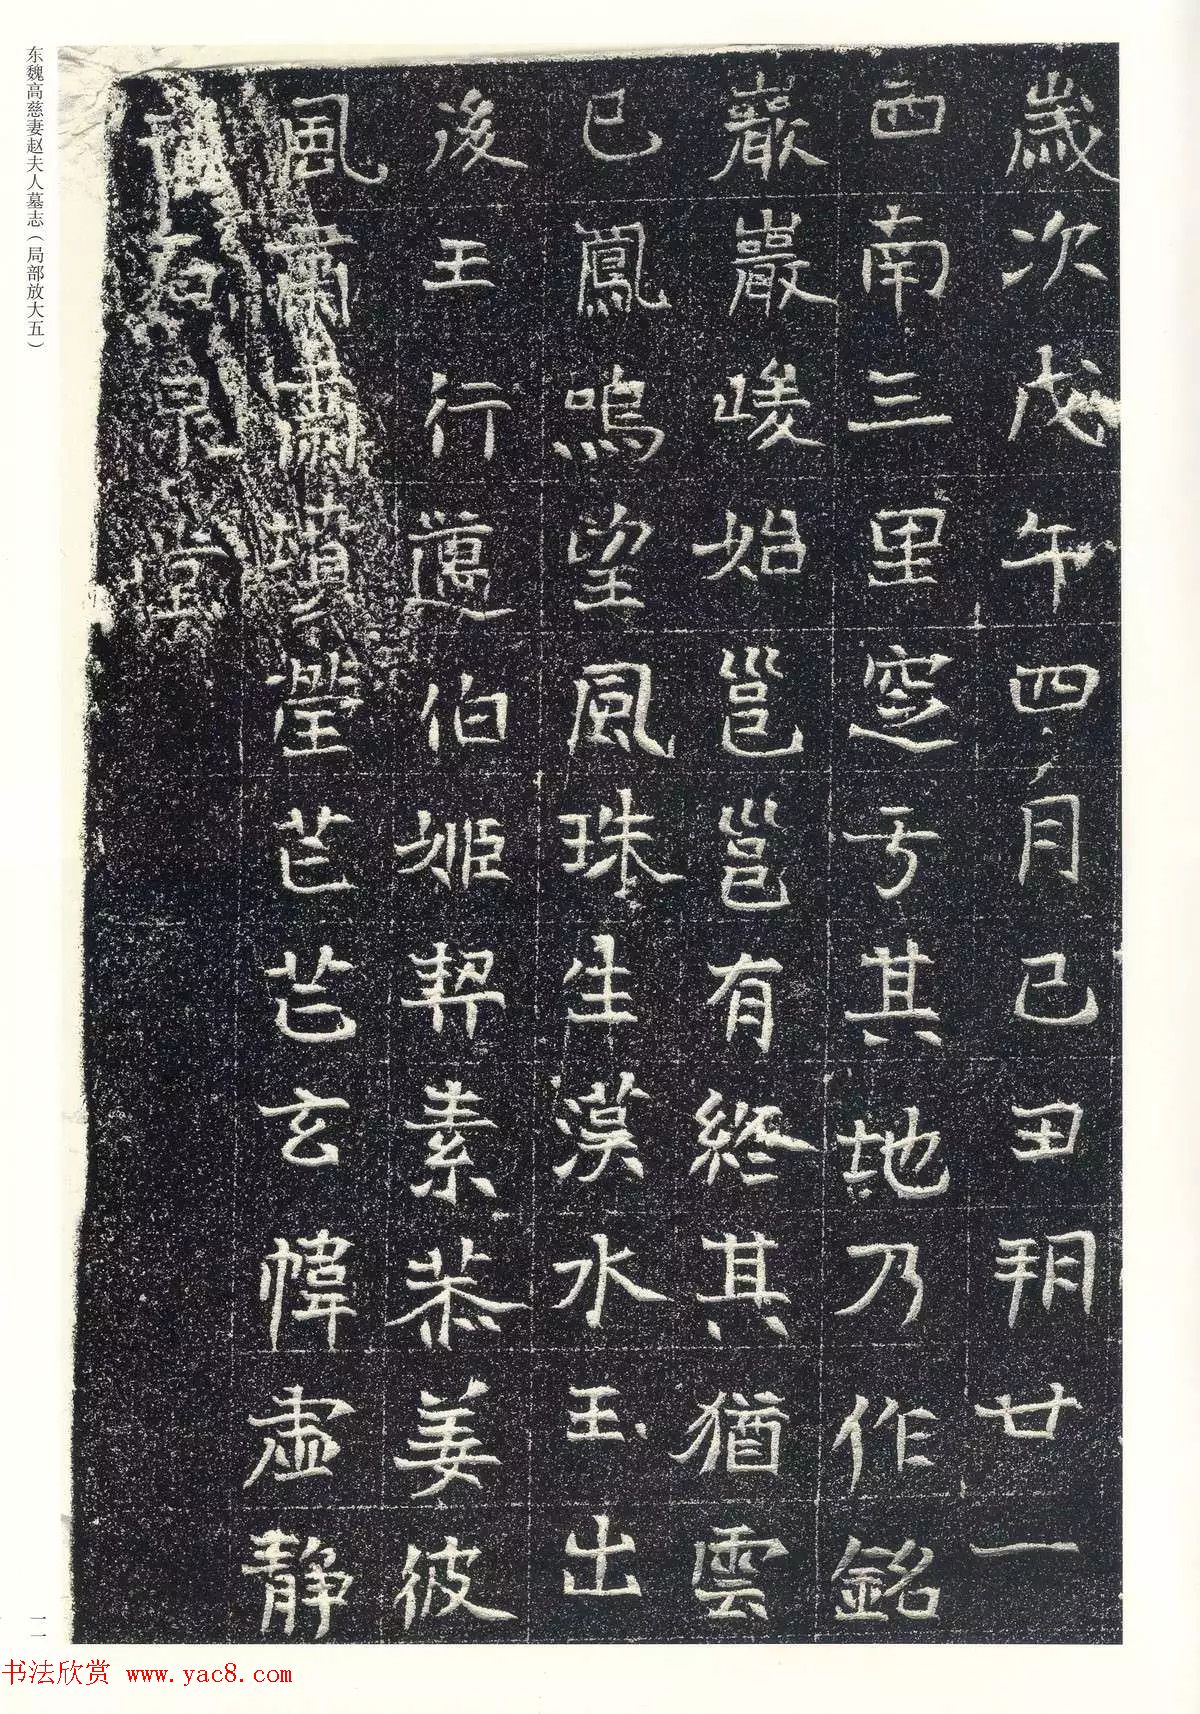 东魏高慈妻赵夫人墓志（局部放大五）
歲次戊午四月己丑朔廿一
西南三里窆于其地乃作銘
巖巖峻始邕邕有終其猶雲
已鳳鳴望風珠生漢水玉出
後王行邁伯姬契素恭姜彼
風肅肅墳塋芒芒玄幃虛靜
石泉堂
一一
书法欣赏 www.yac8.com